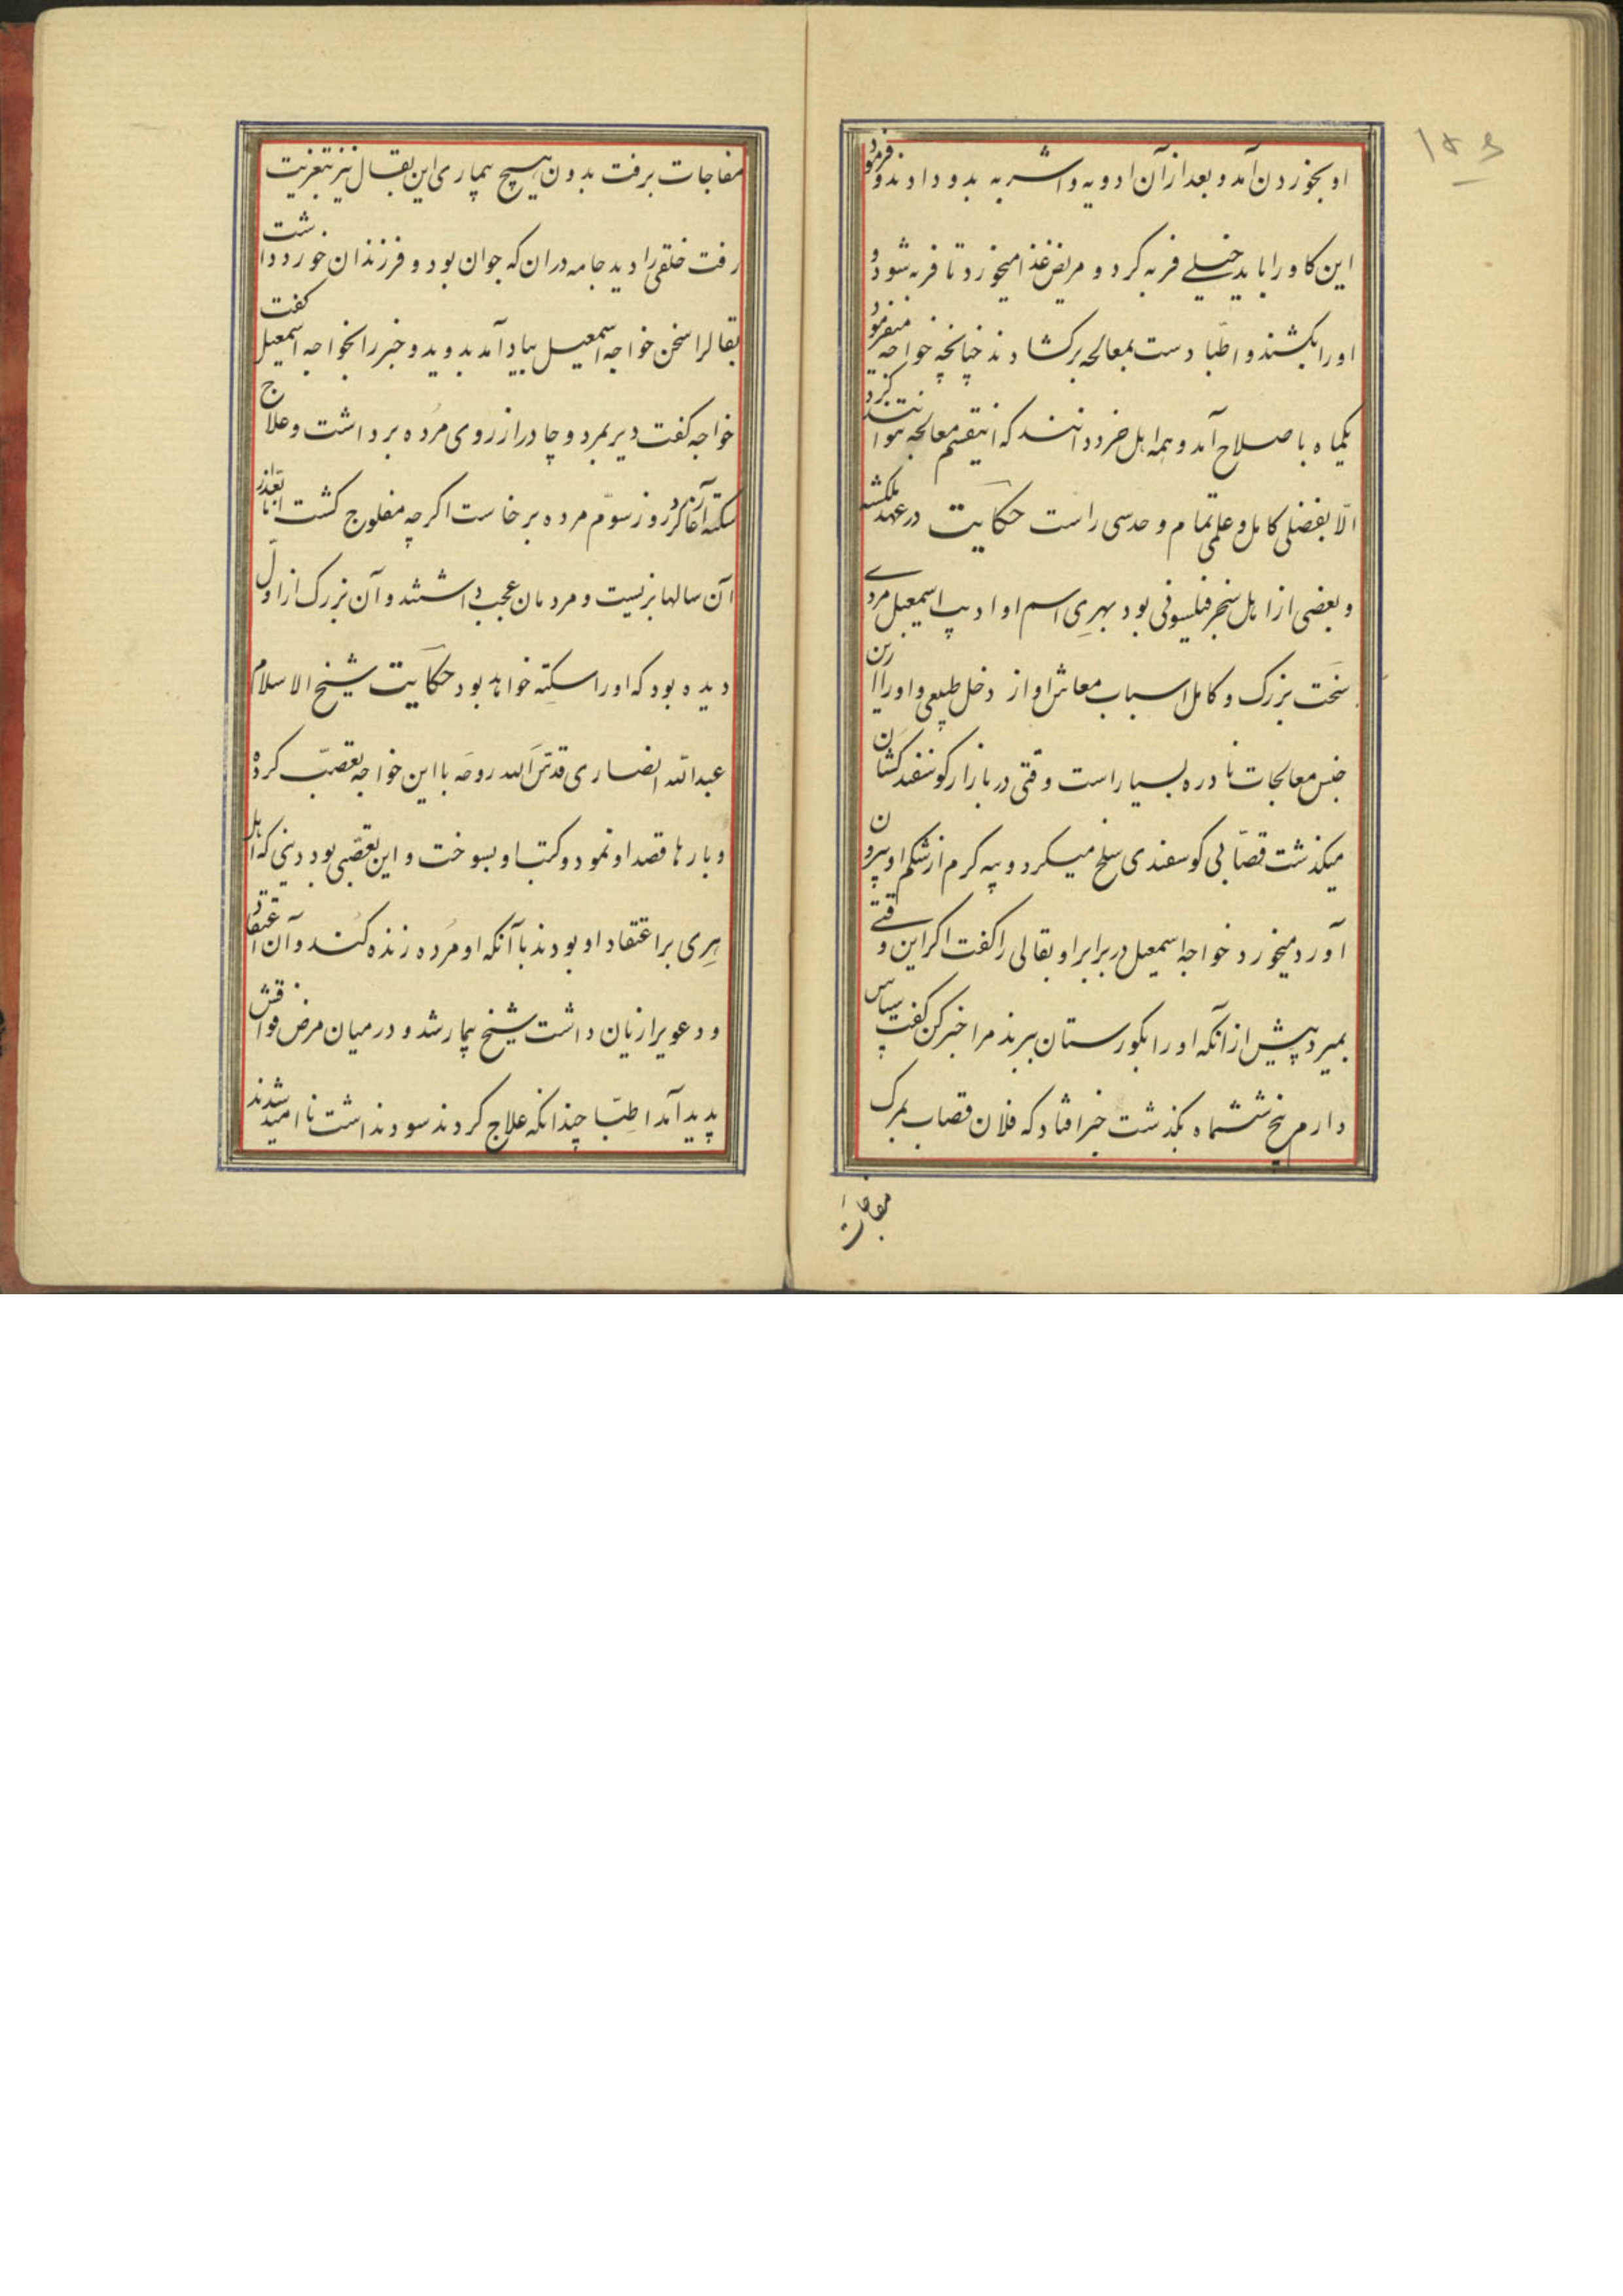 او بخوردن آمد و بعد از آن ادویه و اشربه بدو دادند و فرمود
این کاو را باید خیلے فربه کرد و مریض غذا میخورد تا فربه شود و
او را بکشند و اطبا دست بمعالجه برکشادند چنانچه خواجه میفرمود
یکماه باصلاح آمد و همه اهل خرد دانند که اینقسم معالجه نتوانند کرد
الّا بفضلی کامل و علمی تمام و حدسی راست حکایت در عهد ملکشه
و بعضی از اهل سنجر فیلسوفی بود بهری اسم او ادیب اسمعیل مردے
سخت بزرک و کامل اسباب معاش او از دخل طبیعی و او را ازین
جنس معالجات نادره بسیار است وقتی در بازار کوسفند کشان
میکذشت قصّابی کوسفندی سلخ میکرد و پیه کرم از شکم او بیرون
آورد میخورد خواجه اسمعیل در برابر او بقالی را کفت اکر این وقتے
بمیرد پیش از آنکه او را بکورستان ببرند مرا خبر کن کفت سپاس
دارم پنج ششماه بکذشت خبر افتاد که فلان قصاب بمرک
مفاجات
مفاجات برفت بدون هیچ بیماری این بقال نیز بتعزیت
رفت خلقی را دید جامه دران که جوان بود و فرزندان خورد داشت
بقالرا سخن خواجه اسمعیل بیاد آمد بدوید و خبر را بخواجه اسمعیل کفت
خواجه کفت دیر بمرد و چادر از روی مرده برداشت و علاج
سکته آغاز کرد روز سوّم مرده برخاست اکرچه مفلوج کشت امّا بعد از
آن سالها بزیست و مردمان عجب داشتند و آن بزرک از اوّل
دیده بود که او را سکته خواهد بود حکایت شیخ الاسلام
عبدالله انصاری قدّس الله روحه با این خواجه تعصّب کرده
و بارها قصد او نمود و کتب او بسوخت و این تعصّبی بود دینی که اهل
هری بر اعتقاد او بودند با آنکه او مرده زنده کند و آن اعتقاد
و دعویرا زیان داشت شیخ بیمار شد و در میان مرض فواقش
پدید آمد اطبّا چندانکه علاج کردند سود نداشت ناامید شدند